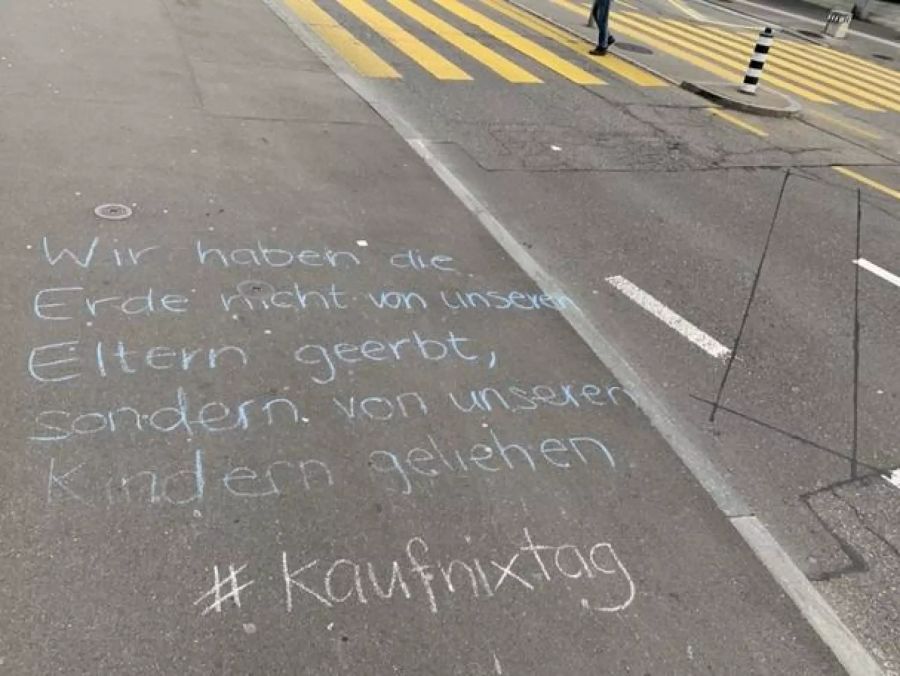 Wir haben die
Erde nicht von unseren
Eltern geerbt,
sondern von unseren
Kindern geliehen.
#kaufnixtag